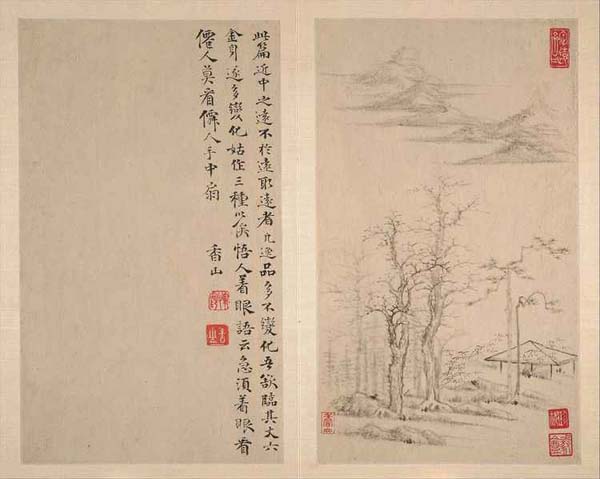 此篇近中之遠不於遠取遠者凡逸品多不變化吾欲臨其丈六
金身遂多變化姑作三種以俟悟人着眼語云急須着眼看
僊人莫看僊人手中扇
香山